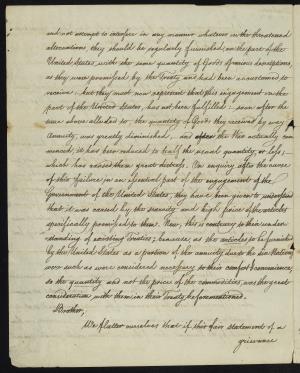 and not attempt to interfere in any manner whatever in the threatened
altercations, they should be regularly furnished, on the part of the
United States, with the same quantity of Goods of various descriptions,
as they were promised by the Treaty and had been accustomed to
receive: but they must now represent that this engagement on the
part of the United States, has not been fulfilled: soon after the
war above alluded to, the quantity of Goods they received by way
Annuity, was greatly diminished, and after the War actually com-
menced, it has been reduced to half the usual quantity, or less,
which has caused them great distress. On enquiry after the cause
of this failure, in an essential part of the engagement of the
Government of the United States, they have been given to understand
that it was caused by the scarcity and high price of the articles
specifically promised to them. Now, this is contrary to their under-
standing of existing Treaties; because, as the articles to be furnished
by the United States as a portion of the annuity due to the Six Nations,
were such as were considered necessary to their comfort & convenience,
so the quantity and not the price of the commodities, was the great
consideration with them in their Treaty, beforementioned.
Brother,
We flatter ourselves that if this fair statement of a
grievance